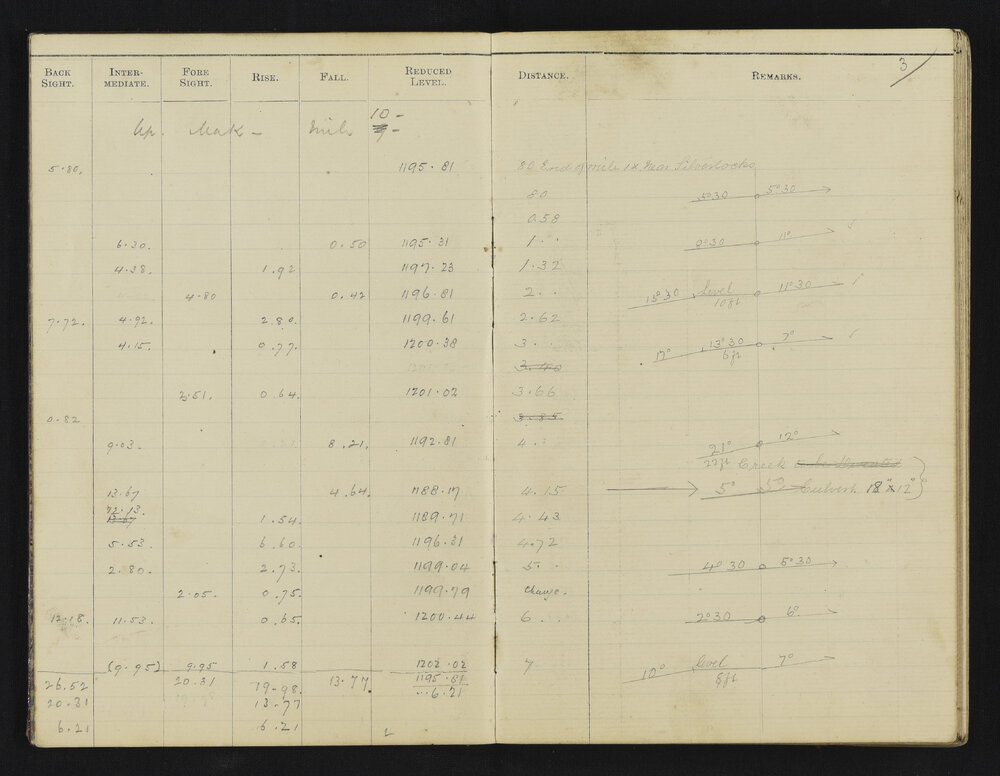 3
BACK SIGHT. INTER-MEDIATE. FORE SIGHT. RISE. FALL. REDUCED LEVEL. DISTANCE. REMARKS.
10 -
Up. Mak - Mile 9 -
5.80. 1195.81 80 End of mile 1x Near Silverlocks
80 5°30 5°30
0.58
6.30. 0.50 1195.31 1.. 9°30 11°
4.38. 1.92 1197.23 1.32
4.80 0.42 1196.81 2.. 15°30 Level 10ft 11°30
7.72. 4.92. 2.80. 1199.61 2.62
4.15. 0.77. 1200.38 3.. 17° 13°30 6ft 7°
3.40
2.51. 0.64. 1201.02 3.66
0.82 3.85
9.03. 8.21. 1192.81 4.. 21° 12°
22ft Creek
13.67 4.64. 1188.17 4.15 5° 5° Culvert 18"x12"
12.13.
13.67 1.54. 1189.71 4.43
5.53. 6.60. 1196.31 4.72
2.80. 2.73. 1199.04 5.. 4°30 5°30
2.05. 0.75. 1199.79 Change.
12.18. 11.53. 0.65. 1200.44 6.. 2°30 6°
(9.95) 9.95 1.58 1202.02 7 10° Level 8ft 7°
26.52 20.31 19.98. 13.77. 1195.81
20.31 13.77 ...6.21
6.21 6.21